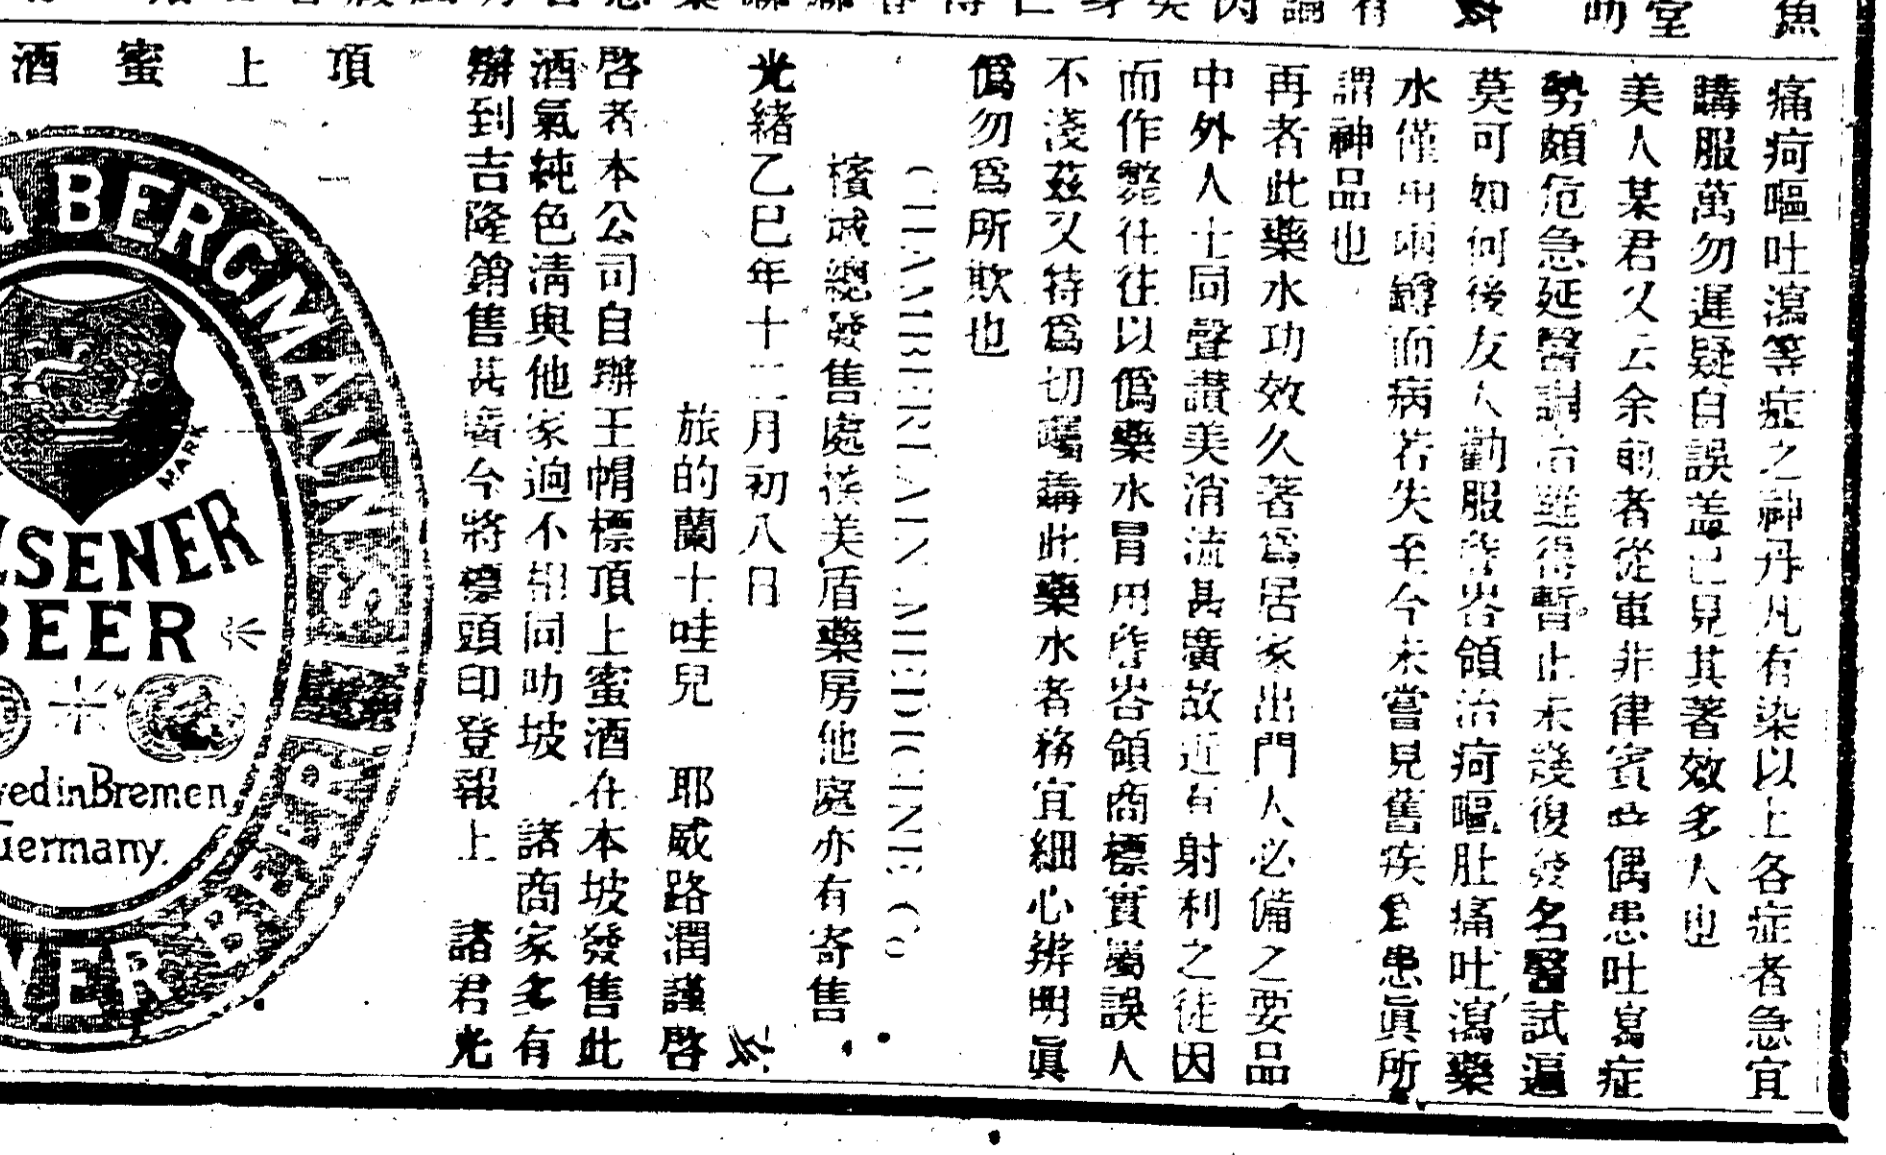 痛疴嘔吐瀉等症之神丹凡有染以上各症者急宜
購服萬勿遲疑自誤盖已見其著效多人也
美人某君又云余前者從軍非律賓時偶患吐瀉症
勢頗危急延醫調治雖得暫止未幾復發名醫試遍
莫可如何後友人勸服詹岑領治疴嘔肚痛吐瀉藥
水僅出兩罇而病若失至今未嘗見舊疾為患眞所
謂神品也
再者此藥水功效久著爲居家出門人必備之要品
中外人士同聲讚美消流甚廣故近有射利之徒因
而作弊往往以僞藥水冒用詹岑領商標實屬誤人
不淺茲又特爲切囑購此藥水者務宜細心辨明眞
僞勿爲所欺也
CHAMBERLAIN MEDICINE Co
檳城總發售處係美盾藥房他處亦有寄售
光緒乙巳年十二月初八日
旅的蘭士哇兒 耶威路潤謹啓
啓者本公司自辦王帽標頂上蜜酒在本坡發售此
酒氣純色清與他家逈不相同叻坡 諸商家多有
辦到吉隆銷售甚廣今將標頭印登報上 諸君光
頂上蜜酒
BERGMANN'S
MARK
SENER
BEER
in Bremen
Germany.
BEER